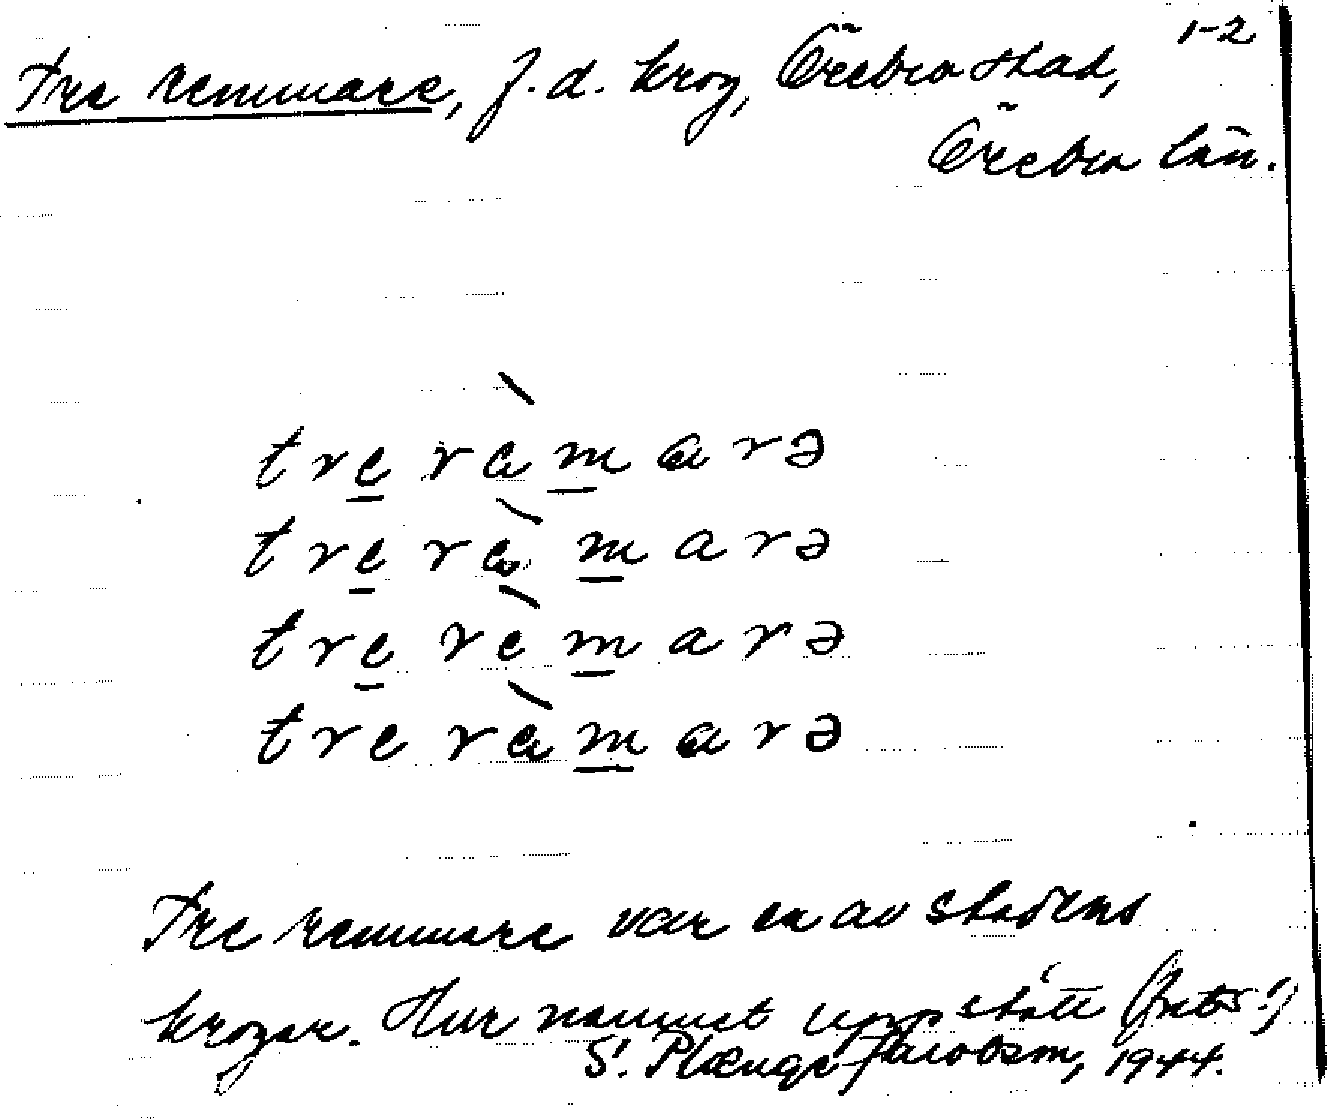 1-2
Tre remmare, f.d. krog, Örebro stad,
Örebro län.
tre rèmarə
tre rèmarə
tre rèmarə
tre rèmarə
Tre remmare var en av stadens
krogar. Hur namnet uppstått
S. Plænge Jacobson, 1944.